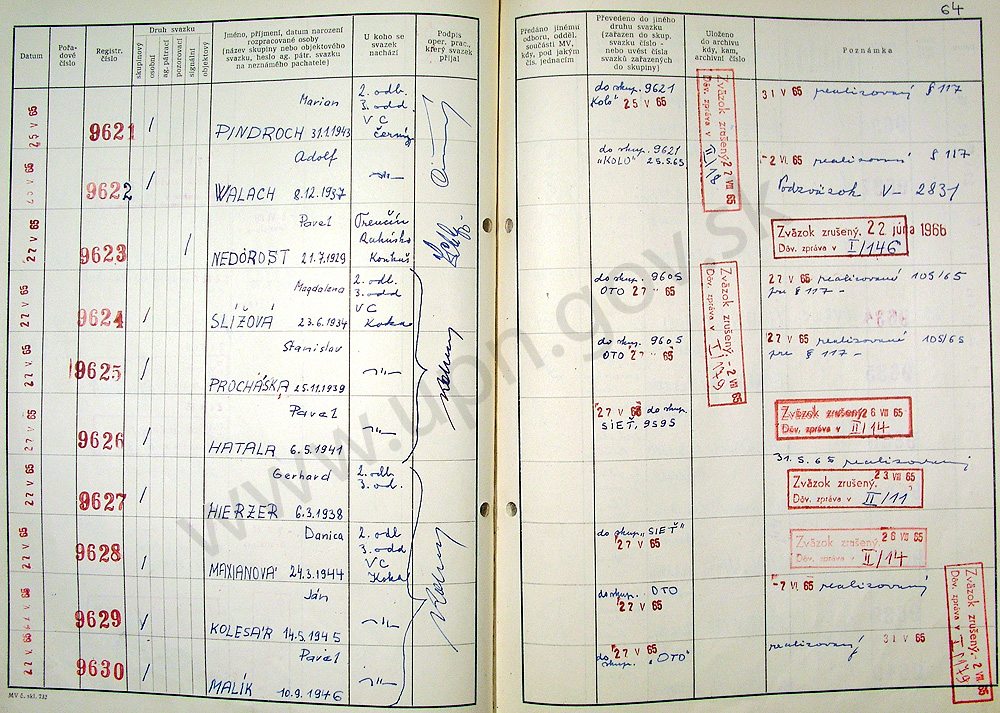 64
Datum
Pořa-
dové
číslo
Registr.
číslo
Druh svazku
skupinový
osobní
ag. pátrací
pozorovací
signální
objektový
Jméno, příjmení, datum narození
rozpracované osoby
(název skupiny nebo objektového
svazku, heslo ag. pátr. svazku
na neznámého pachatele)
U koho se
svazek
nachází
Podpis
oper. prac.,
který svazek
přijal
Předáno jinému
odboru, odděl.
součásti MV,
kdy, pod jakým
čís. jednacím
Převedeno do jiného
druhu svazku
(zařazen do skup.
svazku číslo -
nebo uvést čísla
svazků zařazených
do skupiny)
Uloženo
do archivu
kdy, kam,
archivní číslo
Poznámka
25 V 65
9621
/
Marian
PINDROCH 31.1.1943
2. odb.
3. odd.
VC
do skup. 9621
25 V 65
Zväzok zrušený 22 VII 65
Dáv. zpráva v II/18
31 V 65 realizovaný § 117
V 65
9622
/
Adolf
WALACH 8.12.1937
-"-
do skup. 9621
"KOLO" 25.5.65
-2 VI. 65 realizovaný § 117
Podzväzok V- 2831
27 V 65
9623
/
Pavel
NEDOROST 21.7.1929
Trenčín
Zväzok zrušený. 22 júna 1966
Dáv. zpráva v I/146
27 V 65
9624
/
Magdalena
SLÍŽOVÁ 23.6.1934
2. odb.
3. odd
VC
do skup. 9605
OTO 27 " 65
Zväzok zrušený - 2 VII 65
Dáv. zpráva v I/179
27 V 65 realizované 105/65
pre § 117 -
27 V 65
9625
/
Stanislav
PROCHÁSKA 25.11.1939
-"-
do skup. 9605
OTO 27 " 65
27 V 65 realizované 105/65
pre § 117 -
27 V 65
9626
/
Pavel
HATALA 6.5.1941
-"-
27 V 65 do skup.
SIEŤ, 9595
Zväzok zrušený 26 VIII 65
Dáv. zpráva v II/14
27 V 65
9627
/
Gerhard
HIERZER 6.3.1938
2. odb.
3. od.
31.5.65 realizovaný
Zväzok zrušený. 23 VIII 65
Dáv. zpráva v II/11
27 V 65
9628
/
Danica
MAXIANOVÁ 24.3.1944
2. odb
3. odd
VC
do skup. "SIEŤ"
27 V 65
Zväzok zrušený. 26 VIII 65
Dáv. zpráva v II/14
27 V. 65
9629
/
Ján
KOLESÁR 14.5.1945
-"-
do skup. OTO
27 V 65
-7 VI. 65 realizovaný
Zväzok zrušený. -2 VII 65
Dáv. zpráva v I/179
27 V. 65
9630
/
Pavel
MALÍK 10.9.1946
-"-
27 V 65
do skup. "OTO"
realizovaný 31 V 65
MV č. skl. 732
www.upn.gov.sk